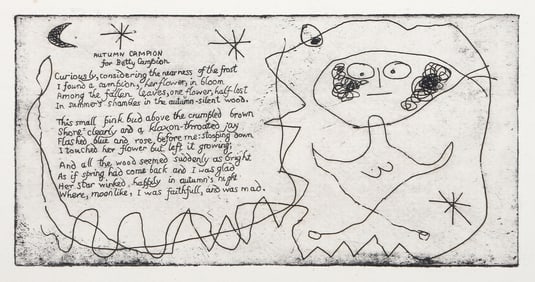 AUTUMN CAMPION
for Betty Campion
Curiously, considering the nearness of the frost
I found a campion, her flower, in bloom
Among the fallen leaves, one flower, half-lost
In summer's shambles in the autumn-silent wood.
This small pink bud above the crumpled brown
Shone clearly and a klaxon-throated jay
Flashed blue and rose, before me: stooping down
I touched her flower but left it growing;
And all the wood seemed suddenly as bright
As if spring had come back and I was glad
Her star winked, happily in autumn's night
Where, moonlike, I was faithfull, and was mad.